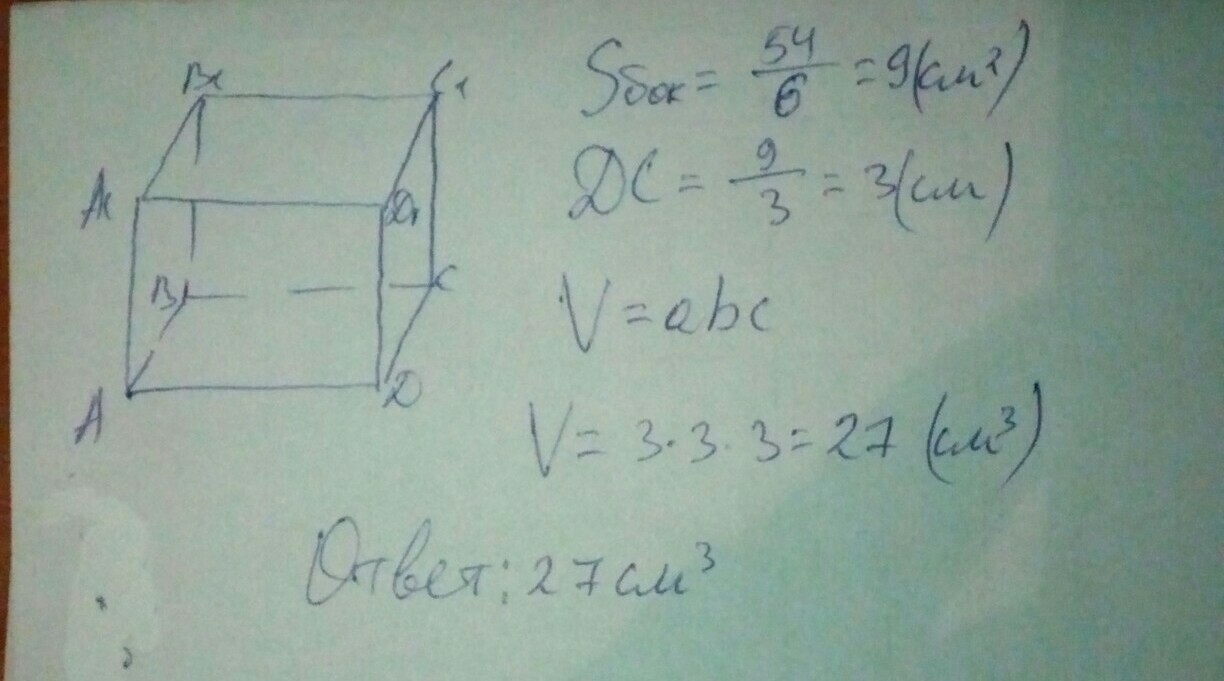 B₁ C₁
A₁ D₁
B C
A D
Sбок = 54/6 = 9(см²)
DC = 9/3 = 3(см)
V = abc
V = 3·3·3 = 27 (см³)
Ответ: 27 см³